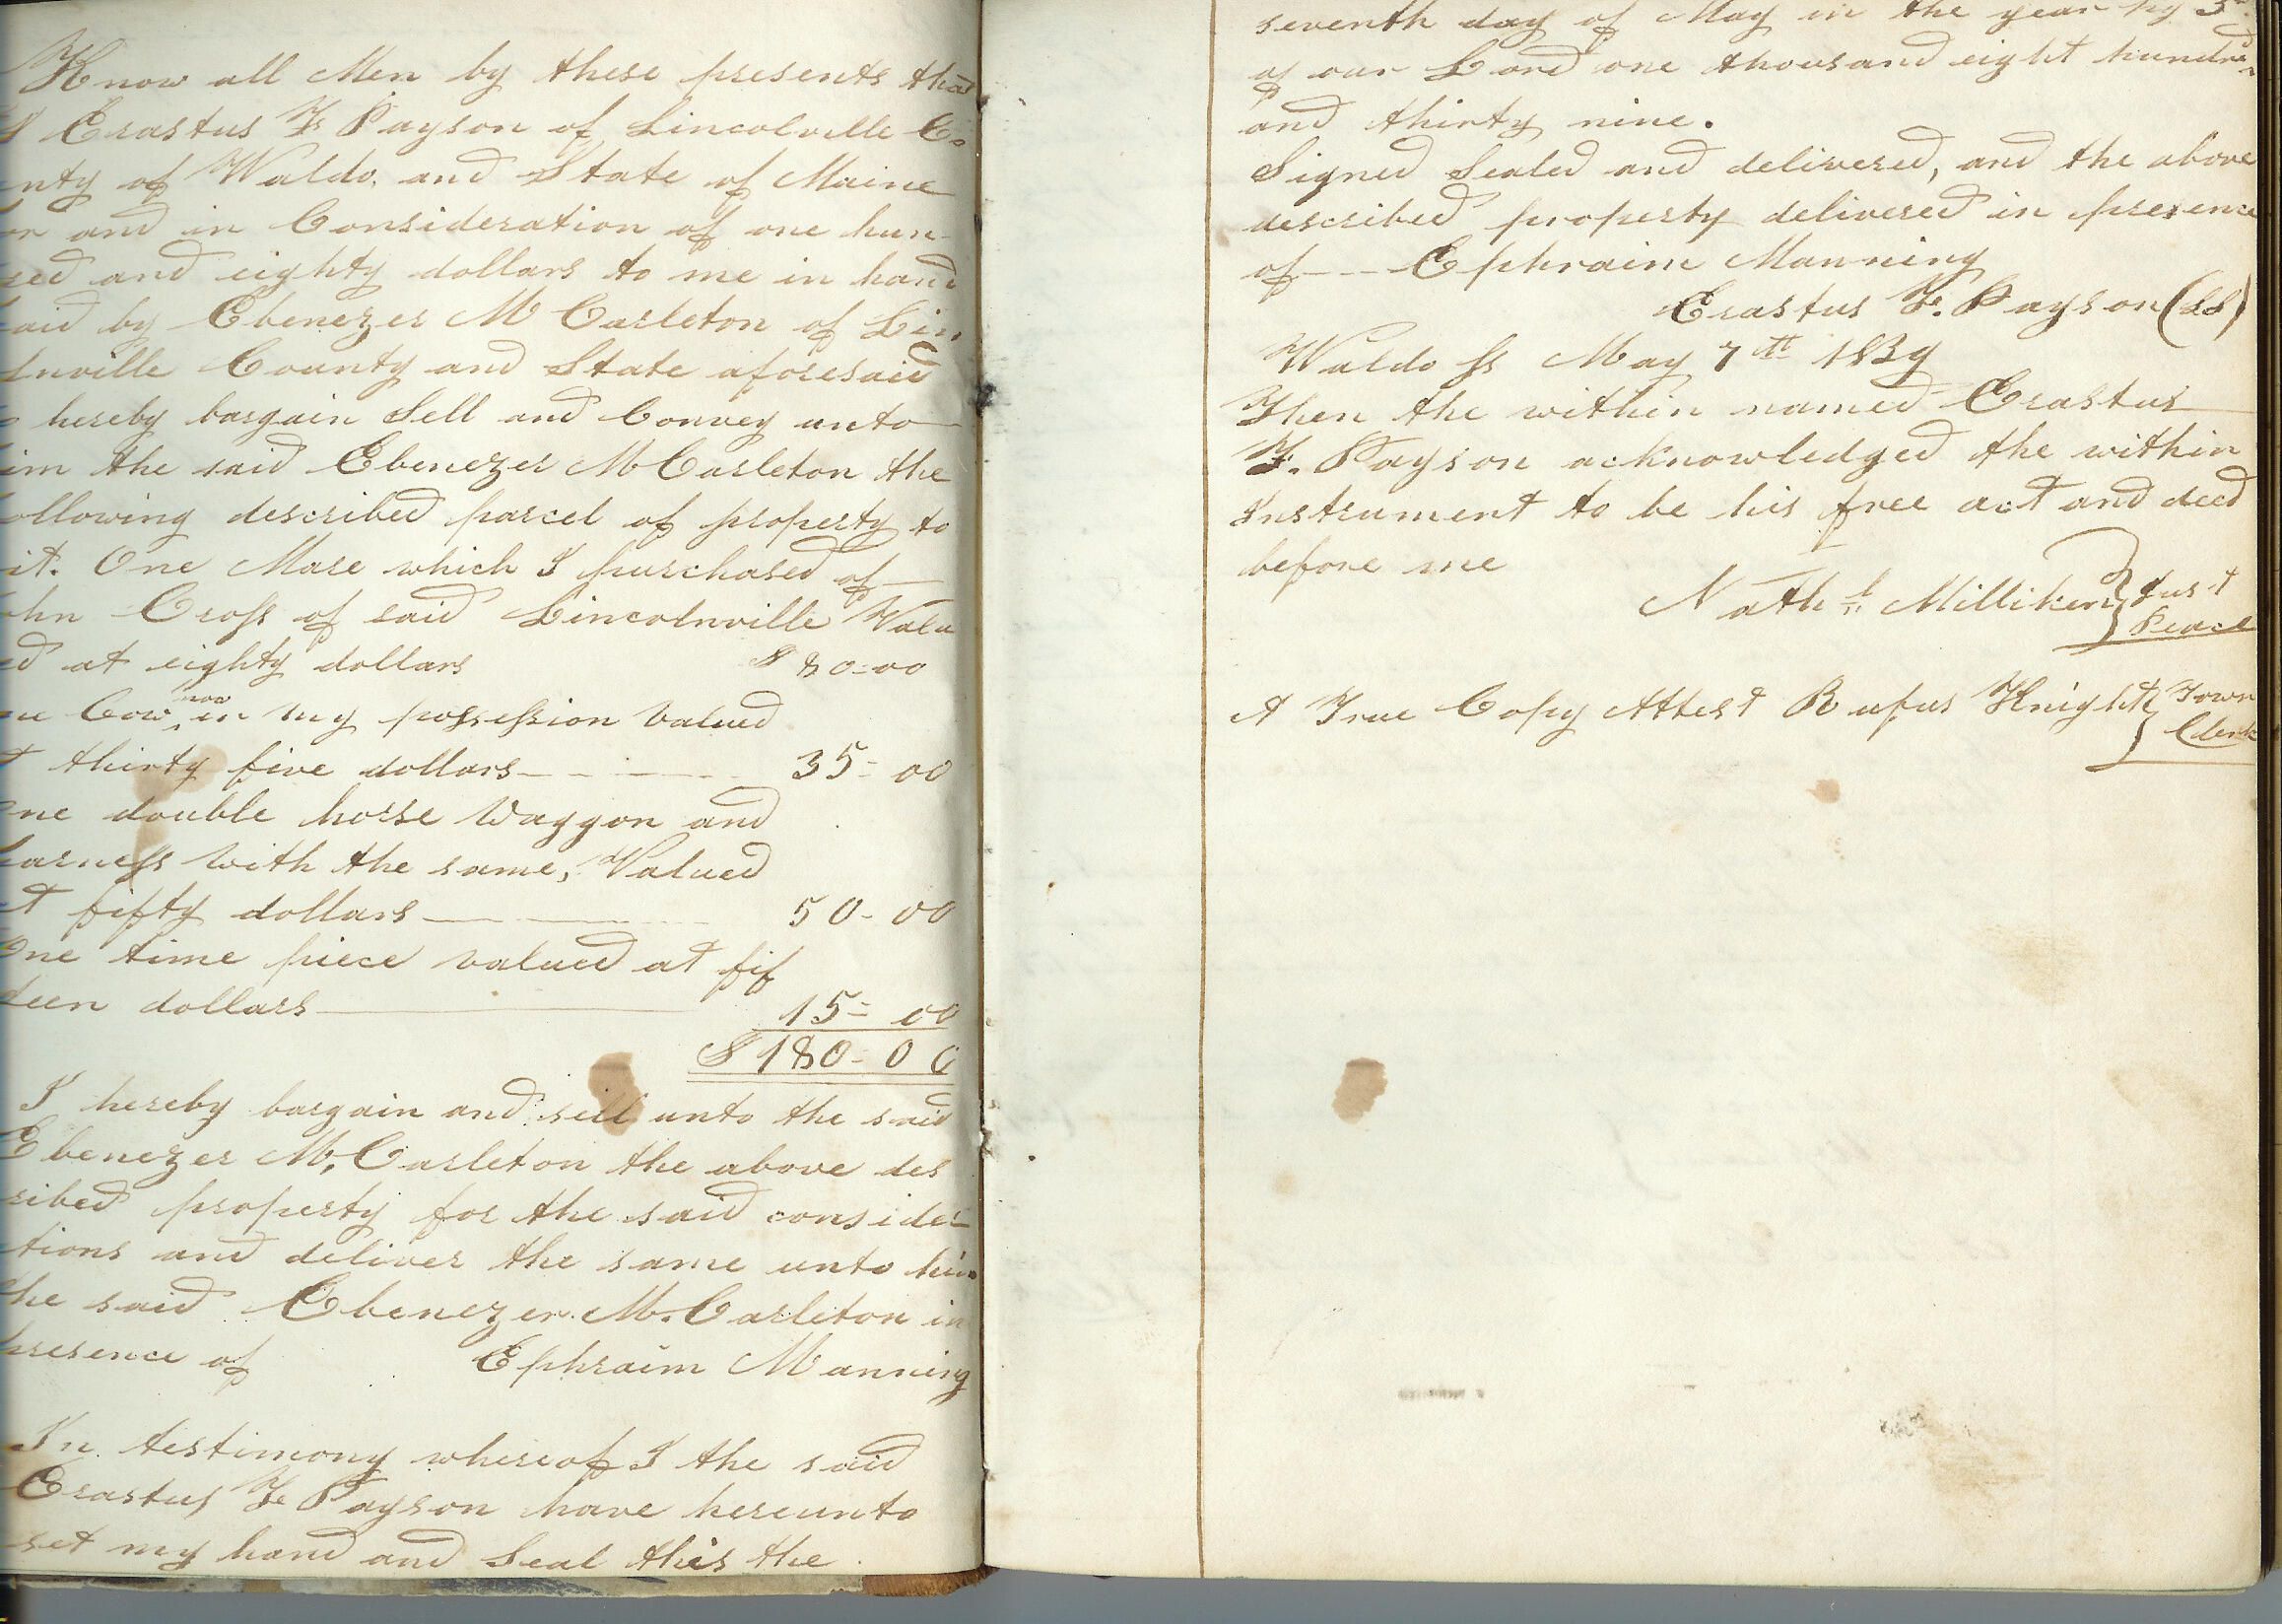 Know all Men by these presents that
I Erastus F. Payson of Lincolnville Co
nty of Waldo. and State of Maine
or and in Consideration of one hun
red and eighty dollars to me in hand
aid by Ebenezer M Carleton of Lin
lnville County and State aforesaid
o hereby bargain Sell and Convey unto
im the said Ebenezer M Carleton the
ollowing described parcel of property to
it. One Mare which I purchased of
ohn Cross of said Lincolnville Valu
ed at eighty dollars $ 80-00
ne Cow now in my possession Valued
t thirty five dollars 35-00
ne double horse Waggon and
harness with the same, Valued
t fifty dollars 50-00
One time piece valued at fif
teen dollars 15-00
$180-00
I hereby bargain and sell unto the said
Ebenezer M. Carleton the above des
ribed property for the said consider
tions and deliver the same unto him
the said Ebenezer M. Carleton in
presence of Ephraim Manning
In testimony whereof I the said
Erastus F. Payson have hereunto
set my hand and Seal this the
seventh day of May in the year
of our Lord one thousand eight hundred
and thirty nine.
Signed Sealed and delivered, and the above
described property delivered in presence
of --- Ephraim Manning
Erastus F. Payson (LS)
Waldo ss May 7th 1839
Then the within named Erastus
F. Payson acknowledged the within
Instrument to be his free act and deed
before me
Nathl Milliken } Just
Peace
A True Copy Attest Rufus Knight } Town
Clerk